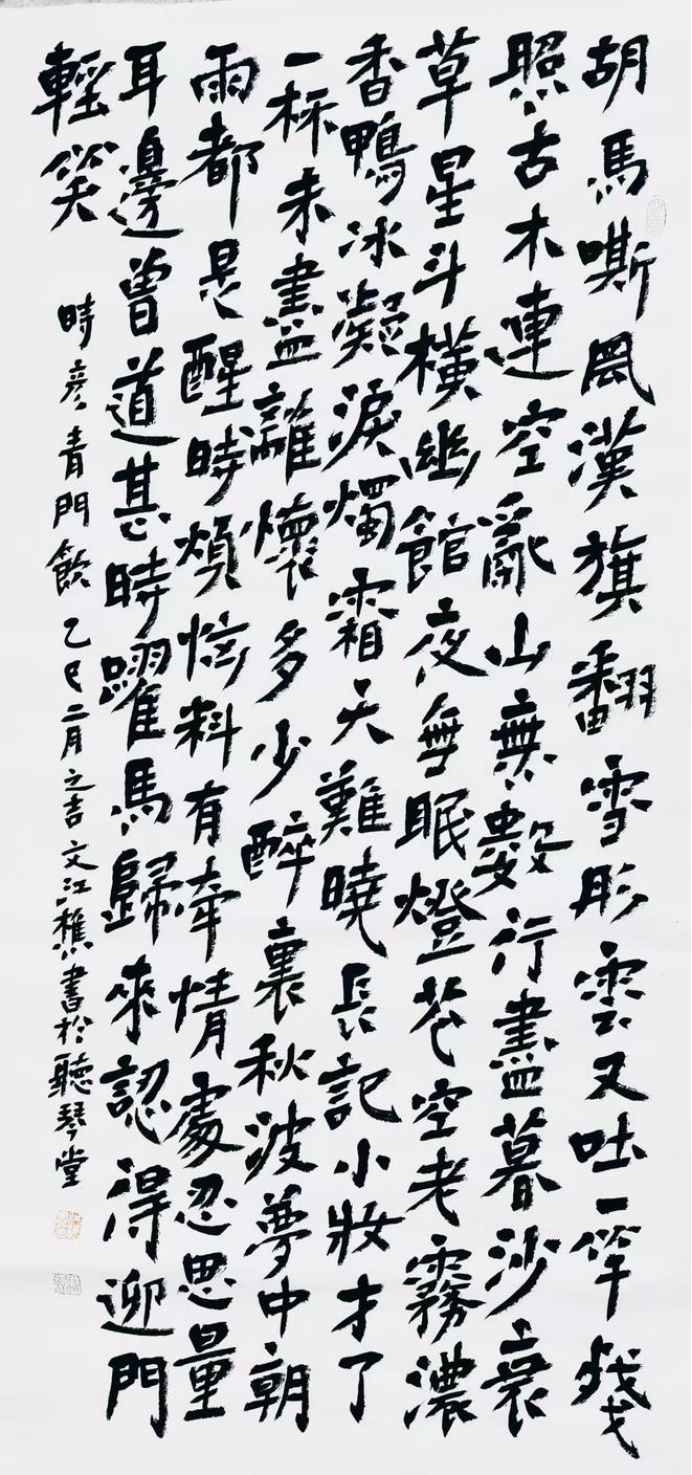 胡馬嘶風漢旗翻雪彤雲又吐一竿殘
照古木連空亂山無數行盡暮沙衰
草星斗橫幽館夜無眠燈花空老霧濃
香鴨冰凝淚燭霜天難曉長記小妝才了
一杯未盡離懷多少醉裏秋波夢中朝
雨都是醒時煩惱料有牽情處忍思量
耳邊曾道甚時躍馬歸來認得迎門
輕笑
時彥青門飲乙巳二月之吉文江樵書於聽琴堂